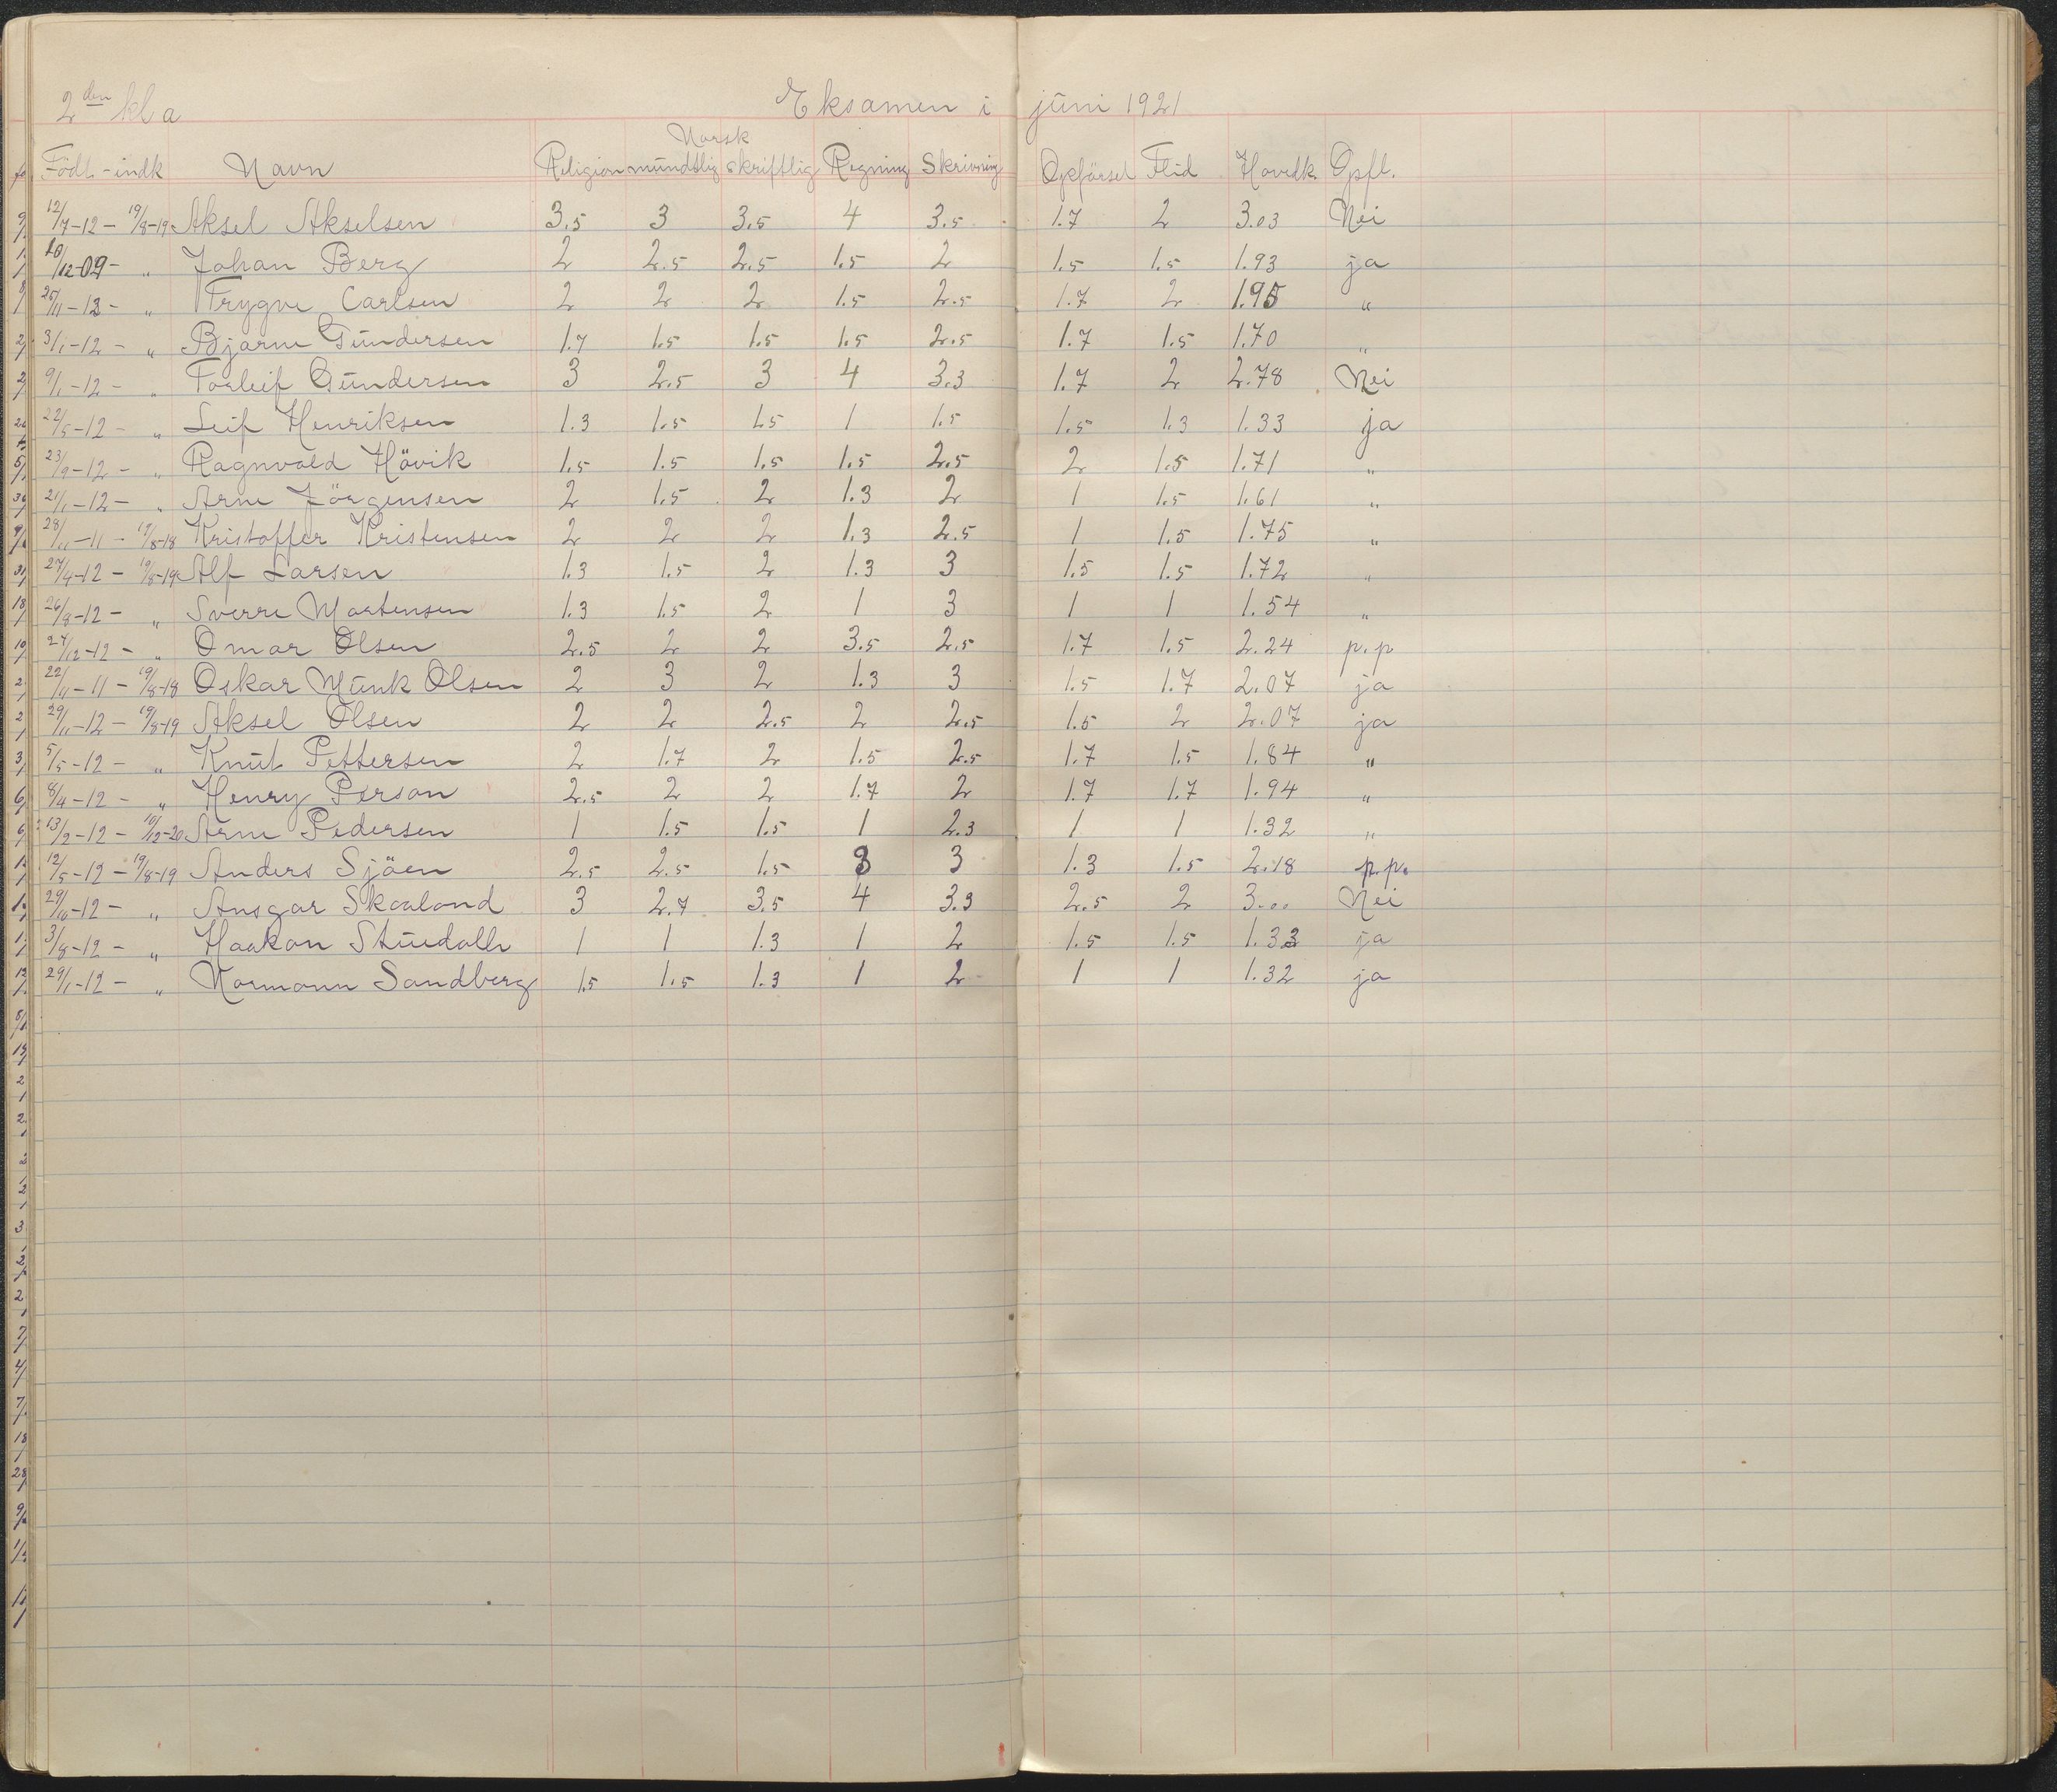 2den kl a Eksamen i juni 1921
Norsk
Födt - indk Navn Religion mundtlig skriftlig Regning Skrivning Opförsel Flid Hovedk. Opfl.
12/7-12 - 19/8-19 Aksel Akselsen 3.5 3 3.5 4 3.5 1.7 2 3.03 Nei
/12-09- „ Johan Berg 2 2.5 2.5 1.5 2 1.5 1.5 1.93 ja
25/11-12 - „ Trygve Carlsen 2 2 2 1.5 2.5 1.7 2 1.95 „
3/1-12 - „ Bjarne Gundersen 1.7 1.5 1.5 1.5 2.5 1.7 1.5 1.70 „
9/1-12 - „ Torleif Gundersen 3 2.5 3 4 3.3 1.7 2 2.78 Nei
22/5-12 - „ Leif Henriksen 1.3 1.5 1.5 1 1.5 1.5 1.3 1.33 ja
23/9-12 - „ Ragnvald Hövik 1.5 1.5 1.5 1.5 2.5 2 1.5 1.71 „
21/1-12 - „ Arne Jörgensen 2 1.5 2 1.3 2 1 1.5 1.61 „
28/11-11 - 19/8-18 Kristoffer Kristensen 2 2 2 1.3 2.5 1 1.5 1.75 „
27/4-12 - 19/8-19 Alf Larsen 1.3 1.5 2 1.3 3 1.5 1.5 1.72 „
26/8-12 - „ Sverre Mortensen 1.3 1.5 2 1 3 1 1 1.54 „
27/12-12 - „ Omar Olsen 2.5 2 2 3.5 2.5 1.7 1.5 2.24 p.p
22/11-11 - 19/8-18 Oskar Munk Olsen 2 3 2 1.3 3 1.5 1.7 2.07 ja
29/11-12 - 19/8-19 Aksel Olsen 2 2 2.5 2 2.5 1.5 2 2.07 ja
5/5-12 - „ Knut Pettersen 2 1.7 2 1.5 2.5 1.7 1.5 1.84 „
8/4-12 - „ Henry Person 2.5 2 2 1.7 2 1.7 1.7 1.94 „
13/2-12 - 10/12-20 Arne Pedersen 1 1.5 1.5 1 2.3 1 1 1.32 „
12/5-12 - 19/8-19 Anders Sjöen 2.5 2.5 1.5 3 3 1.3 1.5 2.18 p.p.
29/10-12 - „ Ansgar Skaaland 3 2.7 3.5 4 3.3 2.5 2 3.00 Nei
3/8-12 - „ Haakon Stuedalh 1 1 1.3 1 2 1.5 1.5 1.33 ja
29/1-12 - „ Normann Sandberg 1.5 1.5 1.3 1 2 1 1 1.32 ja